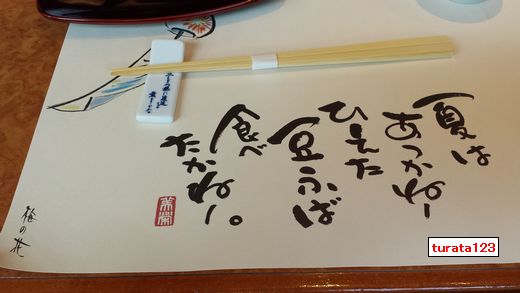 夏は
あつかねー
ひえた
豆ふば
食べ
たかねー。
梅の花
turata123